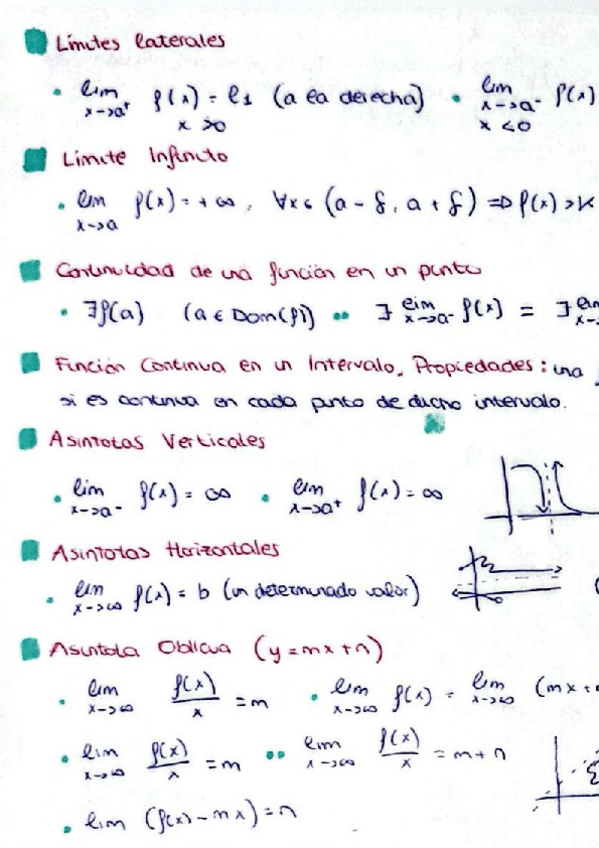 Límites laterales
• lim x→a⁺ f(x) = l₁ (a la derecha) • lim x→a⁻ f(x)
x >0 x <0
Límite Infinito
• lim x→a f(x) = +∞, ∀x ∈ (a - δ, a + δ) ⇒ f(x) > K
Continuidad de una función en un punto
• ∃f(a) (a ∈ Dom(f)) •• ∃ lim x→a⁻ f(x) = ∃ lim x→
Función Continua en un Intervalo, Propiedades: una
si es continua en cada punto de dicho intervalo.
Asíntotas Verticales
• lim x→a⁻ f(x) = ∞ • lim x→a⁺ f(x) = ∞
Asíntotas Horizontales
• lim x→∞ f(x) = b (un determinado valor)
Asíntota Oblicua (y = mx + n)
• lim x→∞ f(x)/x = m • lim x→∞ f(x) = lim x→∞ (mx +
• lim x→∞ f(x)/x = m •• lim x→∞ f(x)/x = m + n
• lim (f(x) - mx) = n